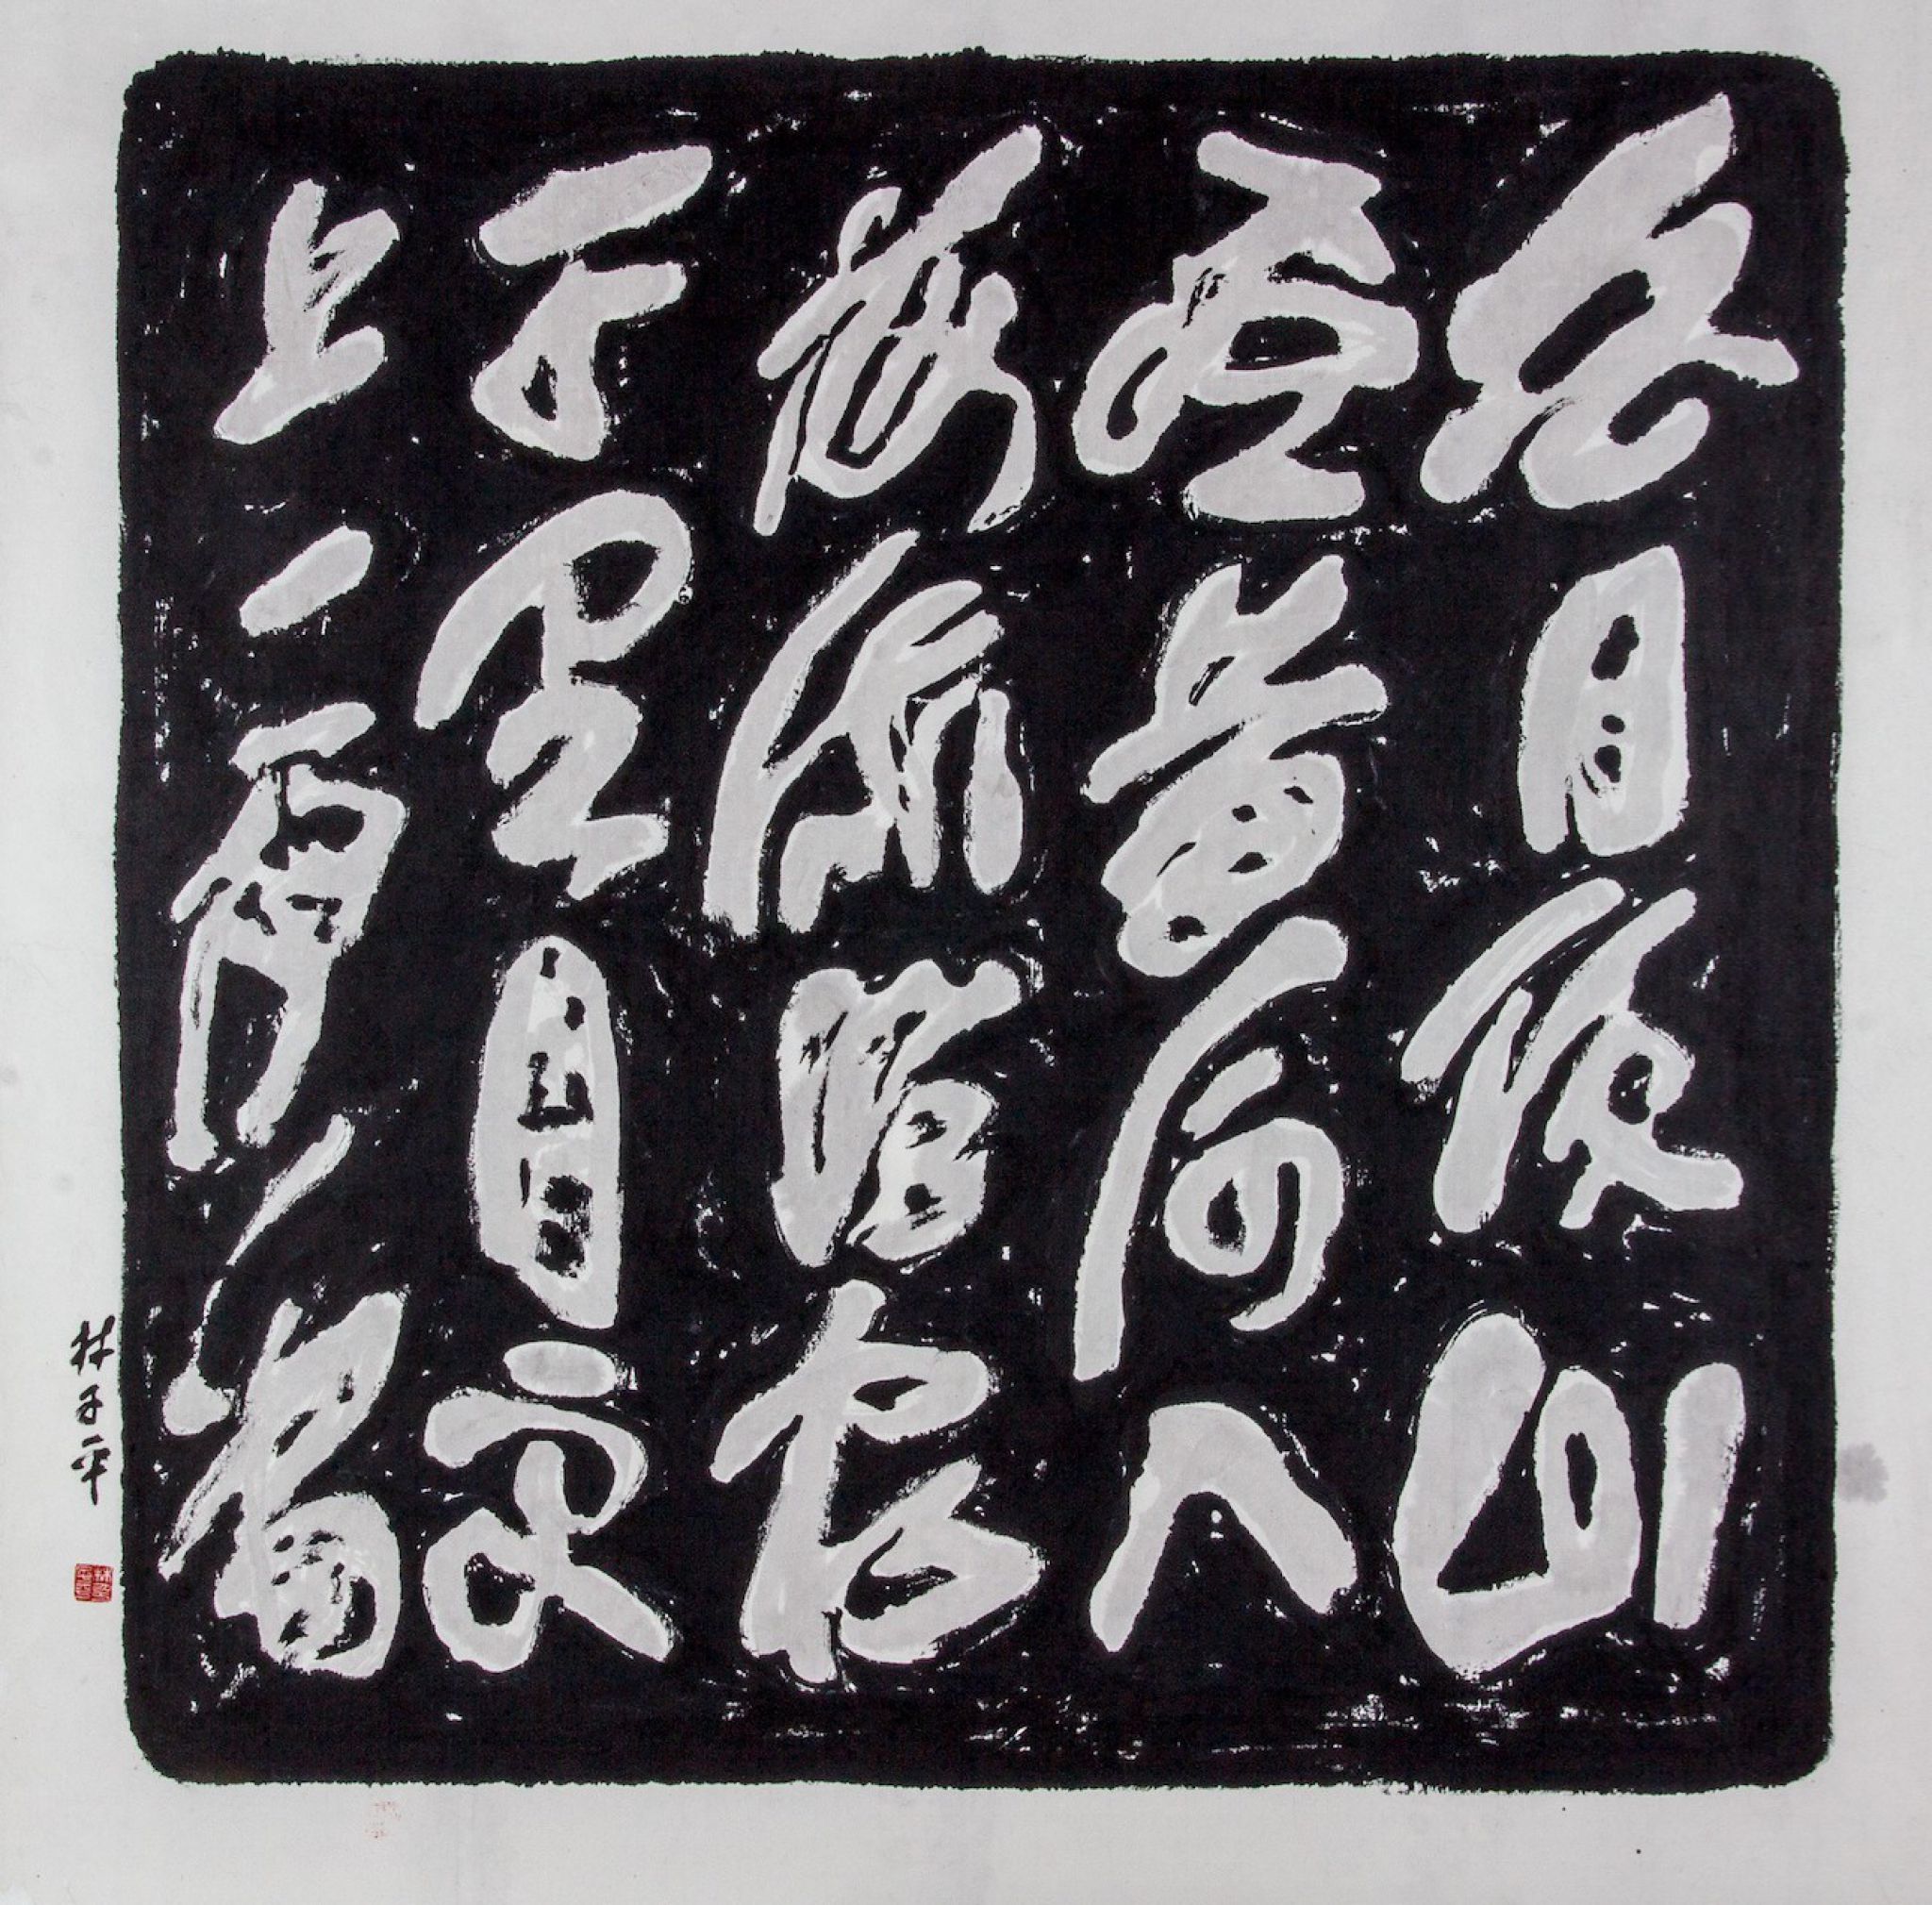 白日依山
盡黃河入
海流欲窮
千里目更
上一層樓
林子平